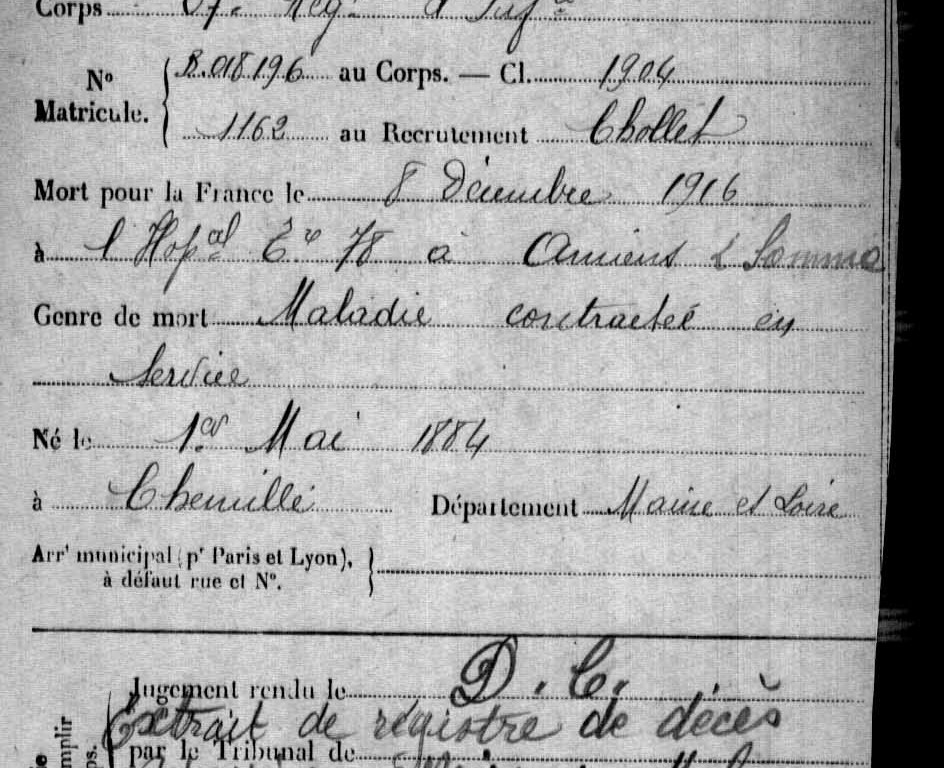 Corps Rég.
Nº
Matricule.
8.018196 au Corps. — Cl. 1904
1162 au Recrutement Chollet
Mort pour la France le 8 Décembre 1916
à l'Hopal 78 à Amiens Somme
Genre de mort Maladie contractée en
Service
Né le 1er Mai 1884
à Chemillé Département Maine et Loire
Arrt municipal (pr Paris et Lyon),
à défaut rue et Nº.
D. C.
Jugement rendu le
Extrait de registre de décès
par le Tribunal de